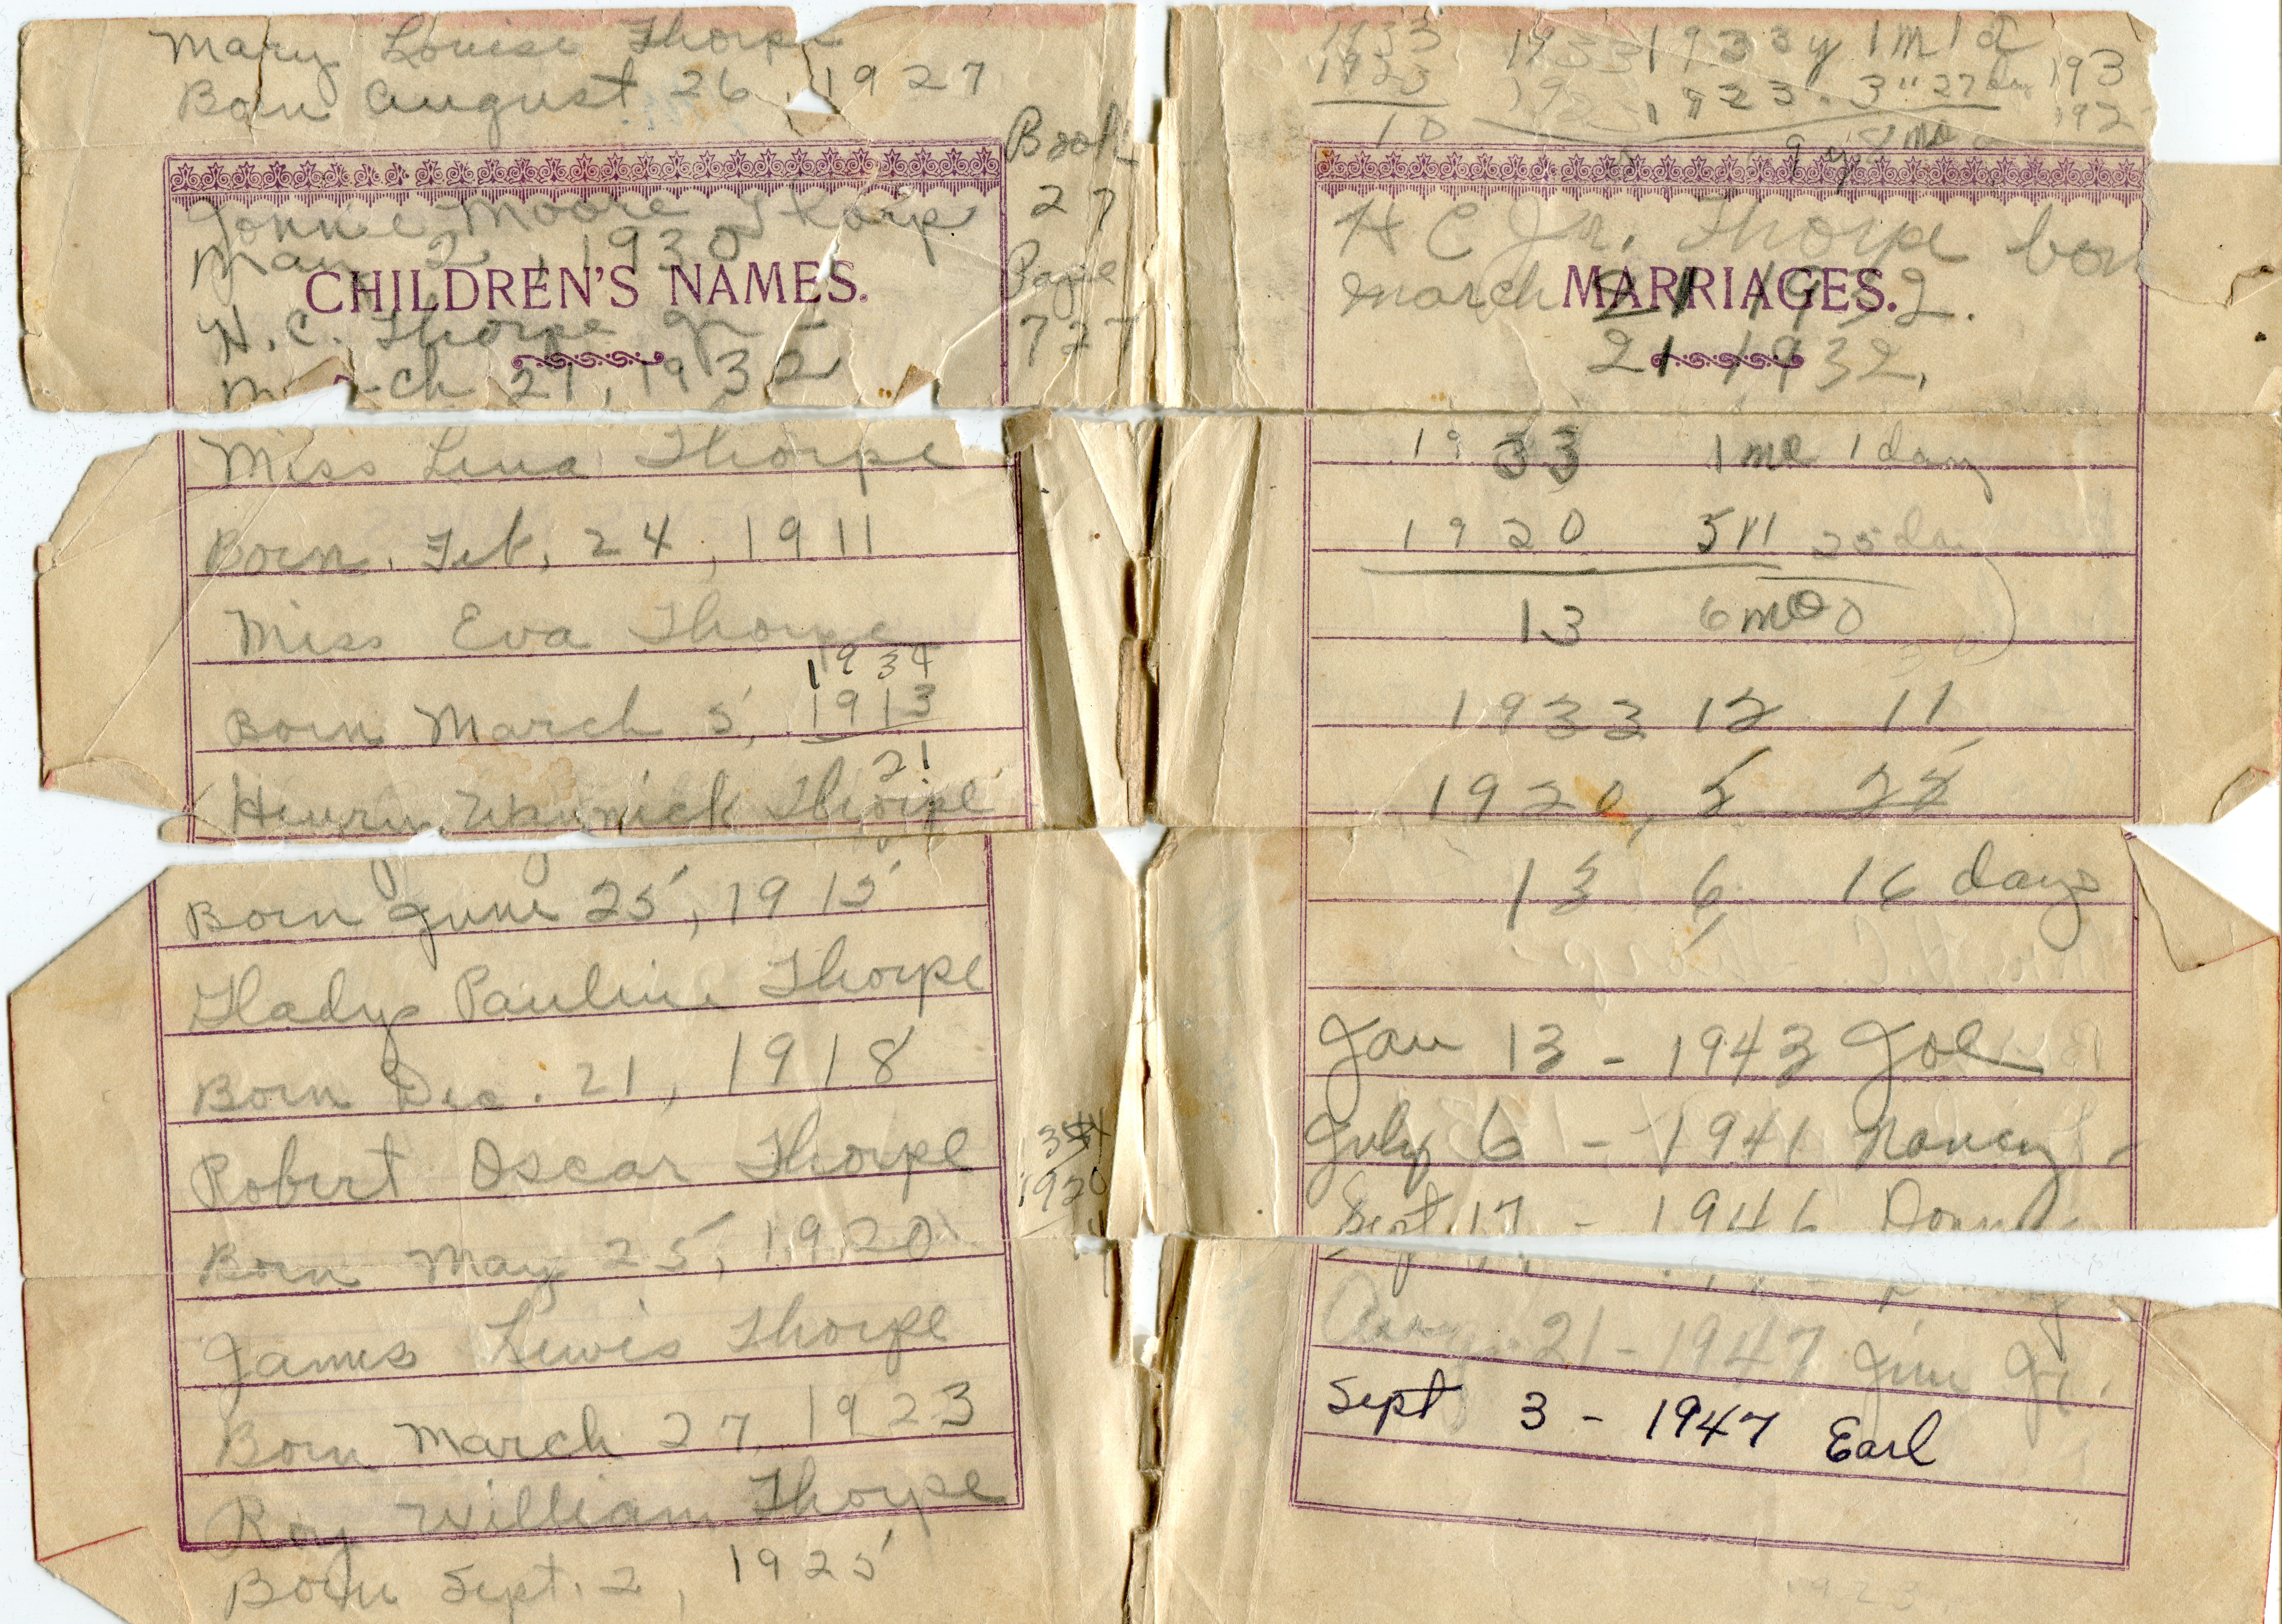 Mary Louise Thorpe
Born August 26, 1927
Book
27
Page
727
Jonnie Moore Thorpe
May 2, 1930
CHILDREN'S NAMES.
H. C. Thorpe Jr -
March 21, 1932
Miss Lena Thorpe
Born. Feb. 24, 1911
Miss Eva Thorpe
1934
Born March 5, 1913
21
Henry Warnick Thorpe
Born June 25, 1915
Gladys Pauline Thorpe
Born Dec. 21, 1918
Robert Oscar Thorpe
1920
Born May 25, 1920
James Lewis Thorpe
Born March 27, 1923
Roy William Thorpe
Born Sept. 2, 1925
1933 1933 1933 y 1 m 1 d 193
1923 1923 1923. 3" 27 da 192
10 9 y 8 mo
H C Jr. Thorpe born
March 21 1932.
MARRIAGES.
21 1932.
1933 1 mo 1 day
1920 5 " 25 da
13 6 mo 0
1933 12 11
1920 5 25
13 6 16 days
Jan 13 - 1943 Joe
July 6 - 1941 Nancy -
Sept 17 - 1946 Donn
Aug 21 - 1947 Jim Jr.
Sept 3 - 1947 Earl
1923